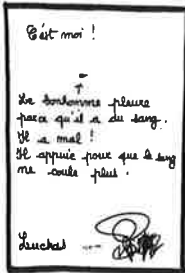 C'est moi !
Le bonhomme pleure
parce qu'il a du sang.
Il a mal !
Il appuie pour que le sang
ne coule plus.
Leuchas